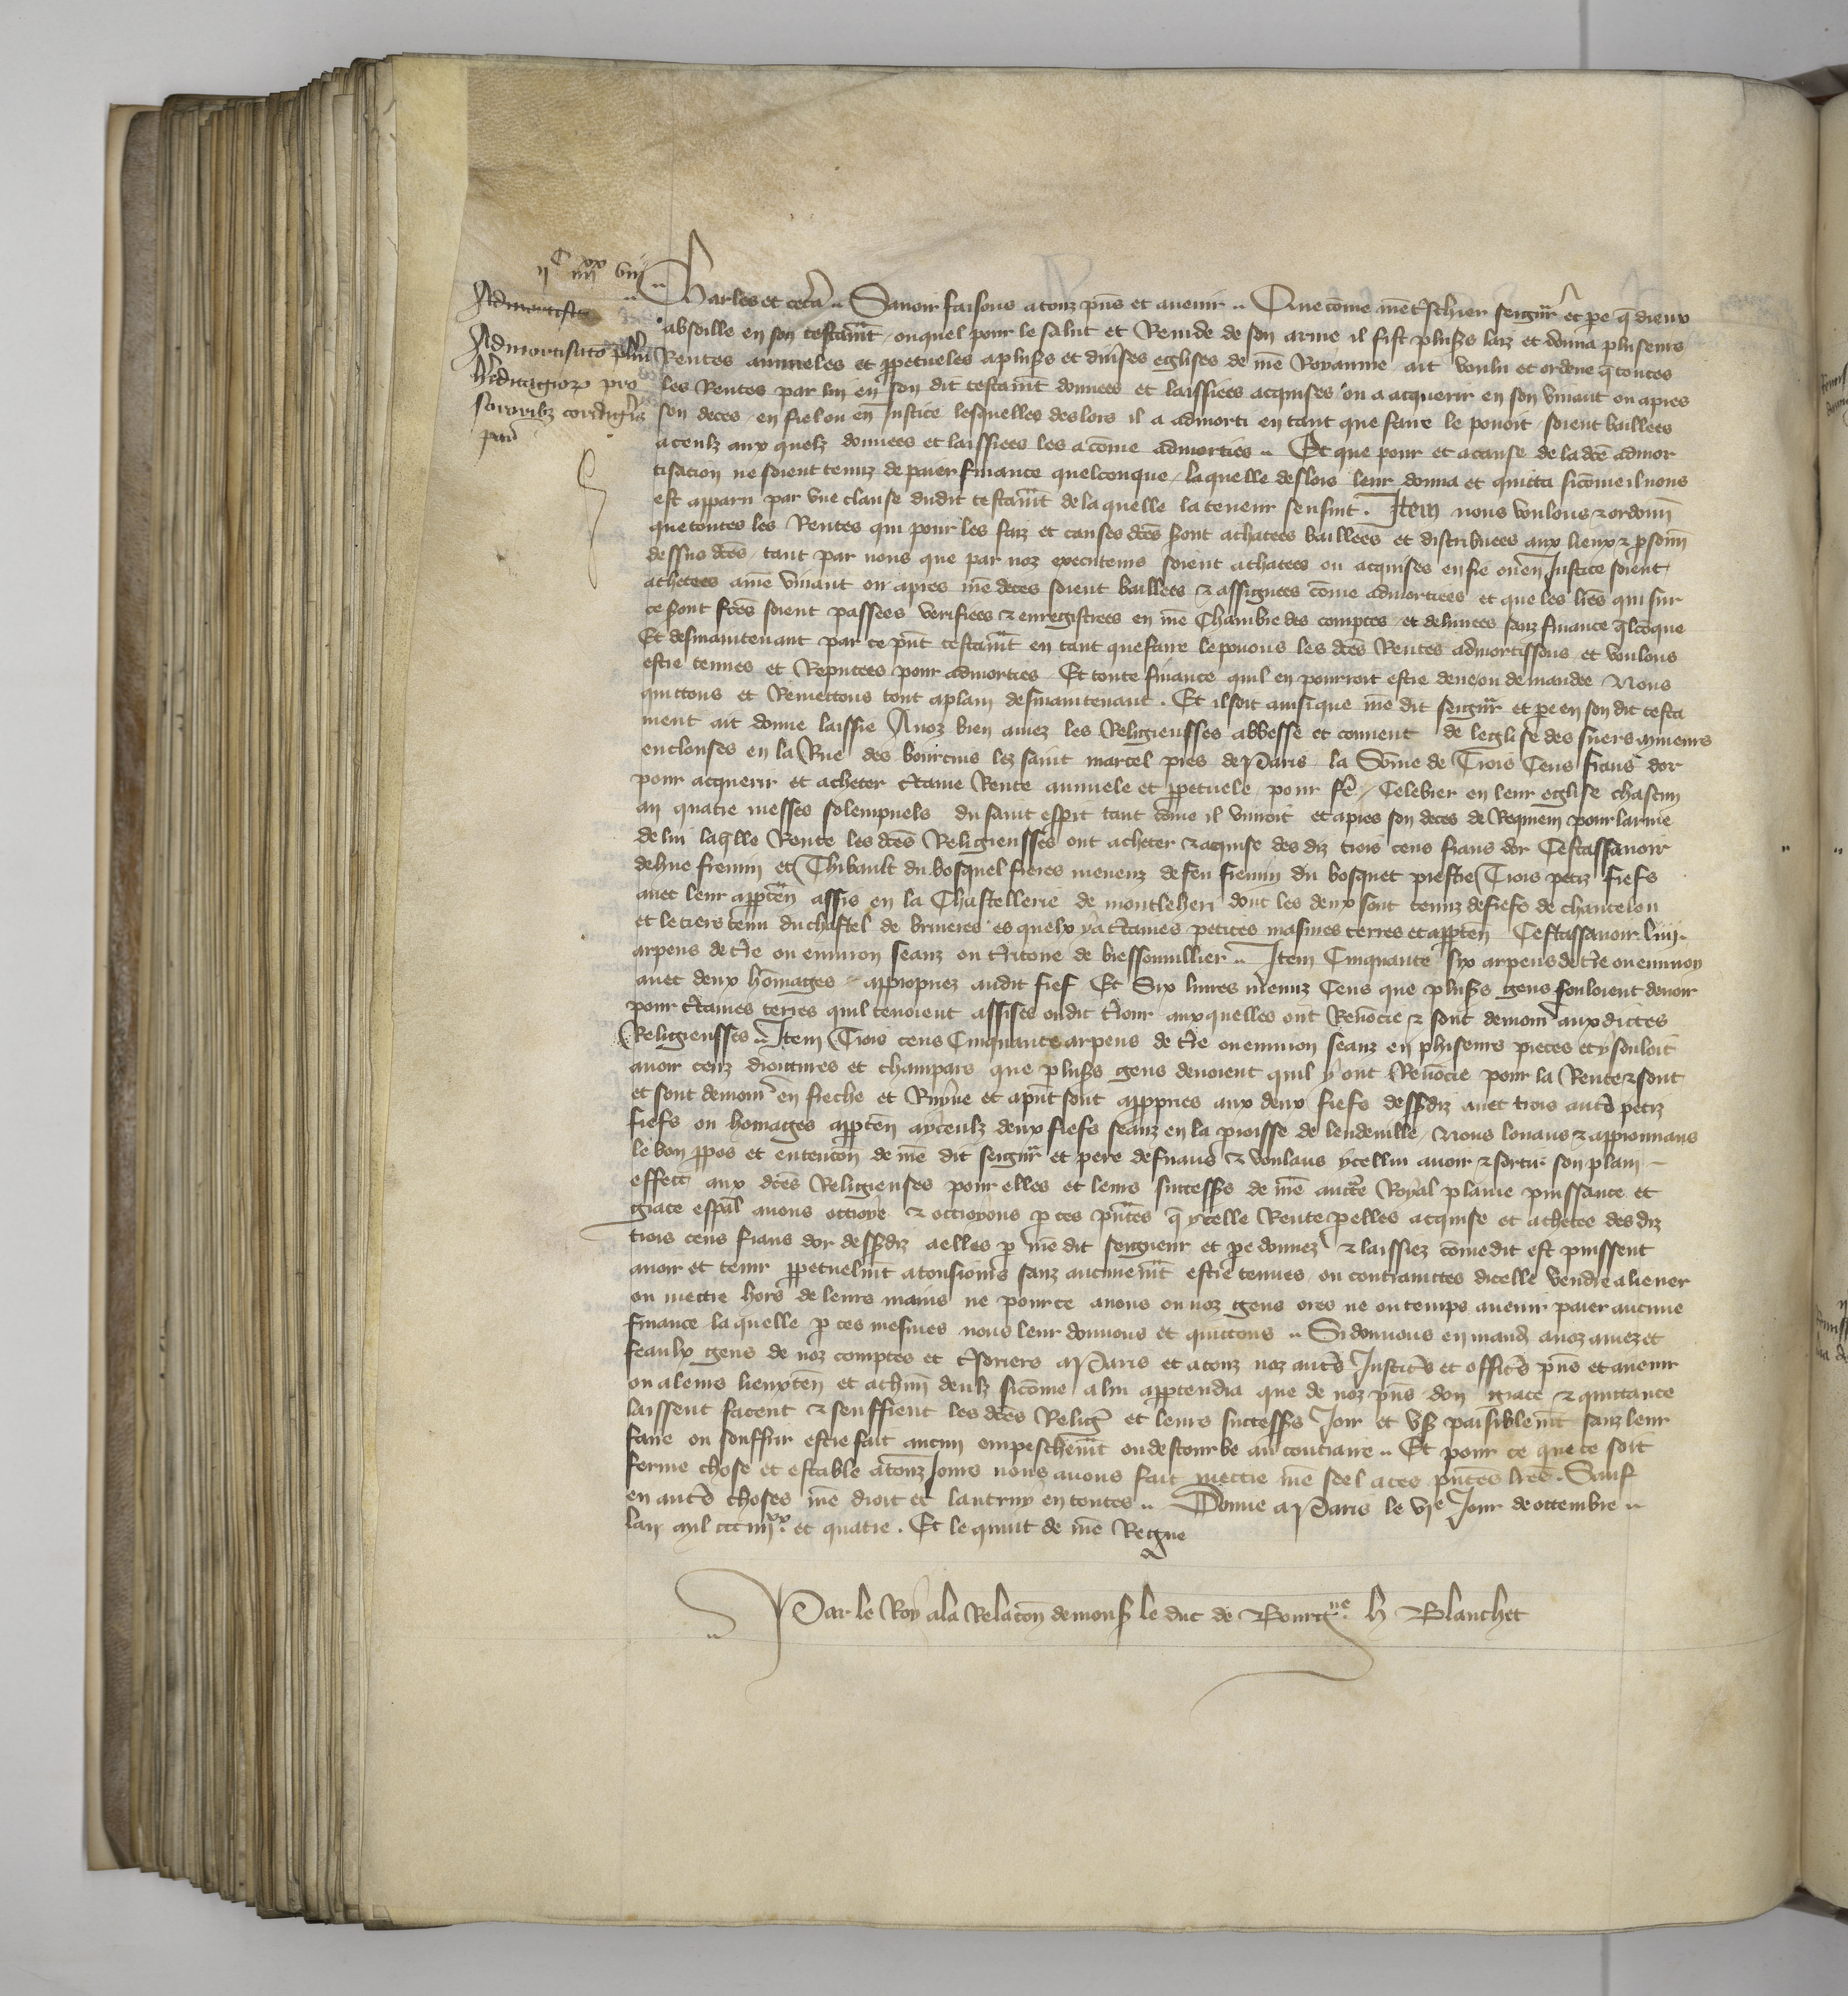 IIC IIIIXX VIII
Admortisatio
Admortisatio plurm
heditagiorum pro
sororibz cordigeris
Charles et cetera Savoir faisons a touz pns et avenir Que come nre treschier seigneur et pere que dieux
absoille en son testamt ouquel pour le salut et Remede de son arme il fist plusrs laiz et donna pluseurs
Rentes annueles et ppetueles a plusrs et divses eglises de nre Royaume ait voulu et ordene q toutes
les Rentes par lui en son dit testamt donnees et laissiees acquises ou a acquerir en son vivant ou apres
son deces en fiel ou en Justice lesquelles deslors il a admorti en tant que faire le povoit soient baillees
a ceulz aux quelz donnees et laissiees les a come admorties Et que pour et a cause de la dce admor
tisacion ne soient tenuz de paier finance quelconque laquelle deslors leur donna et quicta sicome il nous
est apparu par une clause dudit testamt de la quelle la teneur sensuit Item nous voulons et ordonn
que toutes les Rentes qui pour les faiz et causes dces sont achatees baillees et distribuees aux lieux et psonn
dessus dces tant par nous que par noz executeurs soient achatees ou acquises en fie ou en Justice soient
achetees a nre vivant ou apres nre deces soient baillees et assignees come admorties et que les lres qui sur
ce sont fces soient passees verifiees et enregistrees en nre Chambre des comptes et delivrees sanz finance qlcoque
Et desmaintenant par ce pnt testamt en tant que faire le povons les dces Rentes admortissons et voulons
estre tenues et Reputees pour admorties Et toute finance quil en pourroit estre deue ou demandee Nous
quictons et Remettons tout a plain desmaintenant Et il soit ainsi que nre dit seigneur et pere en son dit testa
ment ait donne laissie A noz bien amez les Religieusses abbesse et couvent de leglise des suers meneurs
encloses en la Rue des bourcins lez saint marcel pres de Paris la Some de Trois Cens frans dor
pour acquerir et acheter ctaine Rente annuele et ppetuele pour fe Celebrer en leur eglise chascun
an quatre messes solempneles du saint esprit tant come il vivroit et apres son deces de Requiem pour larme
de lui laqlle Rente les dces Religieusses ont acheter et acquise des diz trois cens frans dor Cestassavoir
de hue fremin et Thibault du bosquel freres meneuz de feu fremin du bosquet prestre Trois petiz fiefs
avec leur apptn assis en la Chastellerie de montleheri dont les deux sont tenuz de fiefs de chantelou
et le tiers tenu du chastel de bruieres es quelx y a ctaines petites masures terres et apptn Cestassavoir LIIII
arpens de tre ou environ seanz ou tritore de bressonvillier Item Cinquante six arpens de tre ou environ
avec deux homages appropriez audit fief Et Six livres menuz Cens que plusrs gens souloient devoir
pour ctaines terres quil tenoient assises oudit trour auxquelles ont Renoncie et sont demour aux dictes
Religieusses Item Trois cens Cinquante arpens de tre ou environ seanz en pluseurs pieces et y souloit
avoir cenz droictures et champars que plusrs gens devoient quil y ont Renoncie pour la Rente et sont
et sont demour en freche et Ruyne et a pnt sont appries aux deux fiefs dessdiz avec trois auts petiz
fiefs ou homages apptn a yceulz deux fiefs seanz en la proisse de leudeville Nous louans et approuvans
le bon ppos et entencon de nre dit seigneur et pere desirans et voulans ycellui avoir et sortir son plain
effect aux dces Religieuses pour elles et leurs successrs de nre aucte Royal plaine puissance et
grace espal avons ottroye et ottroyons p ces pntes q ycelle Rente p elles acquise et achetee des diz
trois cens frans dor dessdiz a elles p nre dit seigneur et pe donnez et laissiez come dit est puissent
avoir et tenir ppetuelmt a tousjours sanz aucunemt estre tenues ou contrainctes dicelle vendre aliener
ou mectre hors de leurs mains ne pour ce a nous ou noz gens ores ne ou temps avenir paier aucune
finance la quelle p ces mesmes nous leur donnons et quictons Si donnons en mand a noz amez et
feaulx gens de noz comptes et tsoriers a Paris et a touz noz auts Justics et offics pns et avenir
ou a leurs lieuxten et a chun deulz sicome a lui apptendra que de noz pns don grace et quictance
laissent facent et seuffrent les dces Relig et leurs successrs Joir et us paisiblemt sanz leur
faire ou souffrir estre fait aucun empeschemt ou destourbe au contraire Et pour ce que ce soit
ferme chose et estable a touz Jours nous avons fait mectre nre seel a ces pntes lres Sauf
en auts choses nre droit et lautruy en toutes Donne a Paris le VIe Jour de octembre
lan mil CCC IIIIXX et quatre Et le quint de nre Regne
Par le Roy a la Relacon de monsr le duc de Bourgne h Blanchet